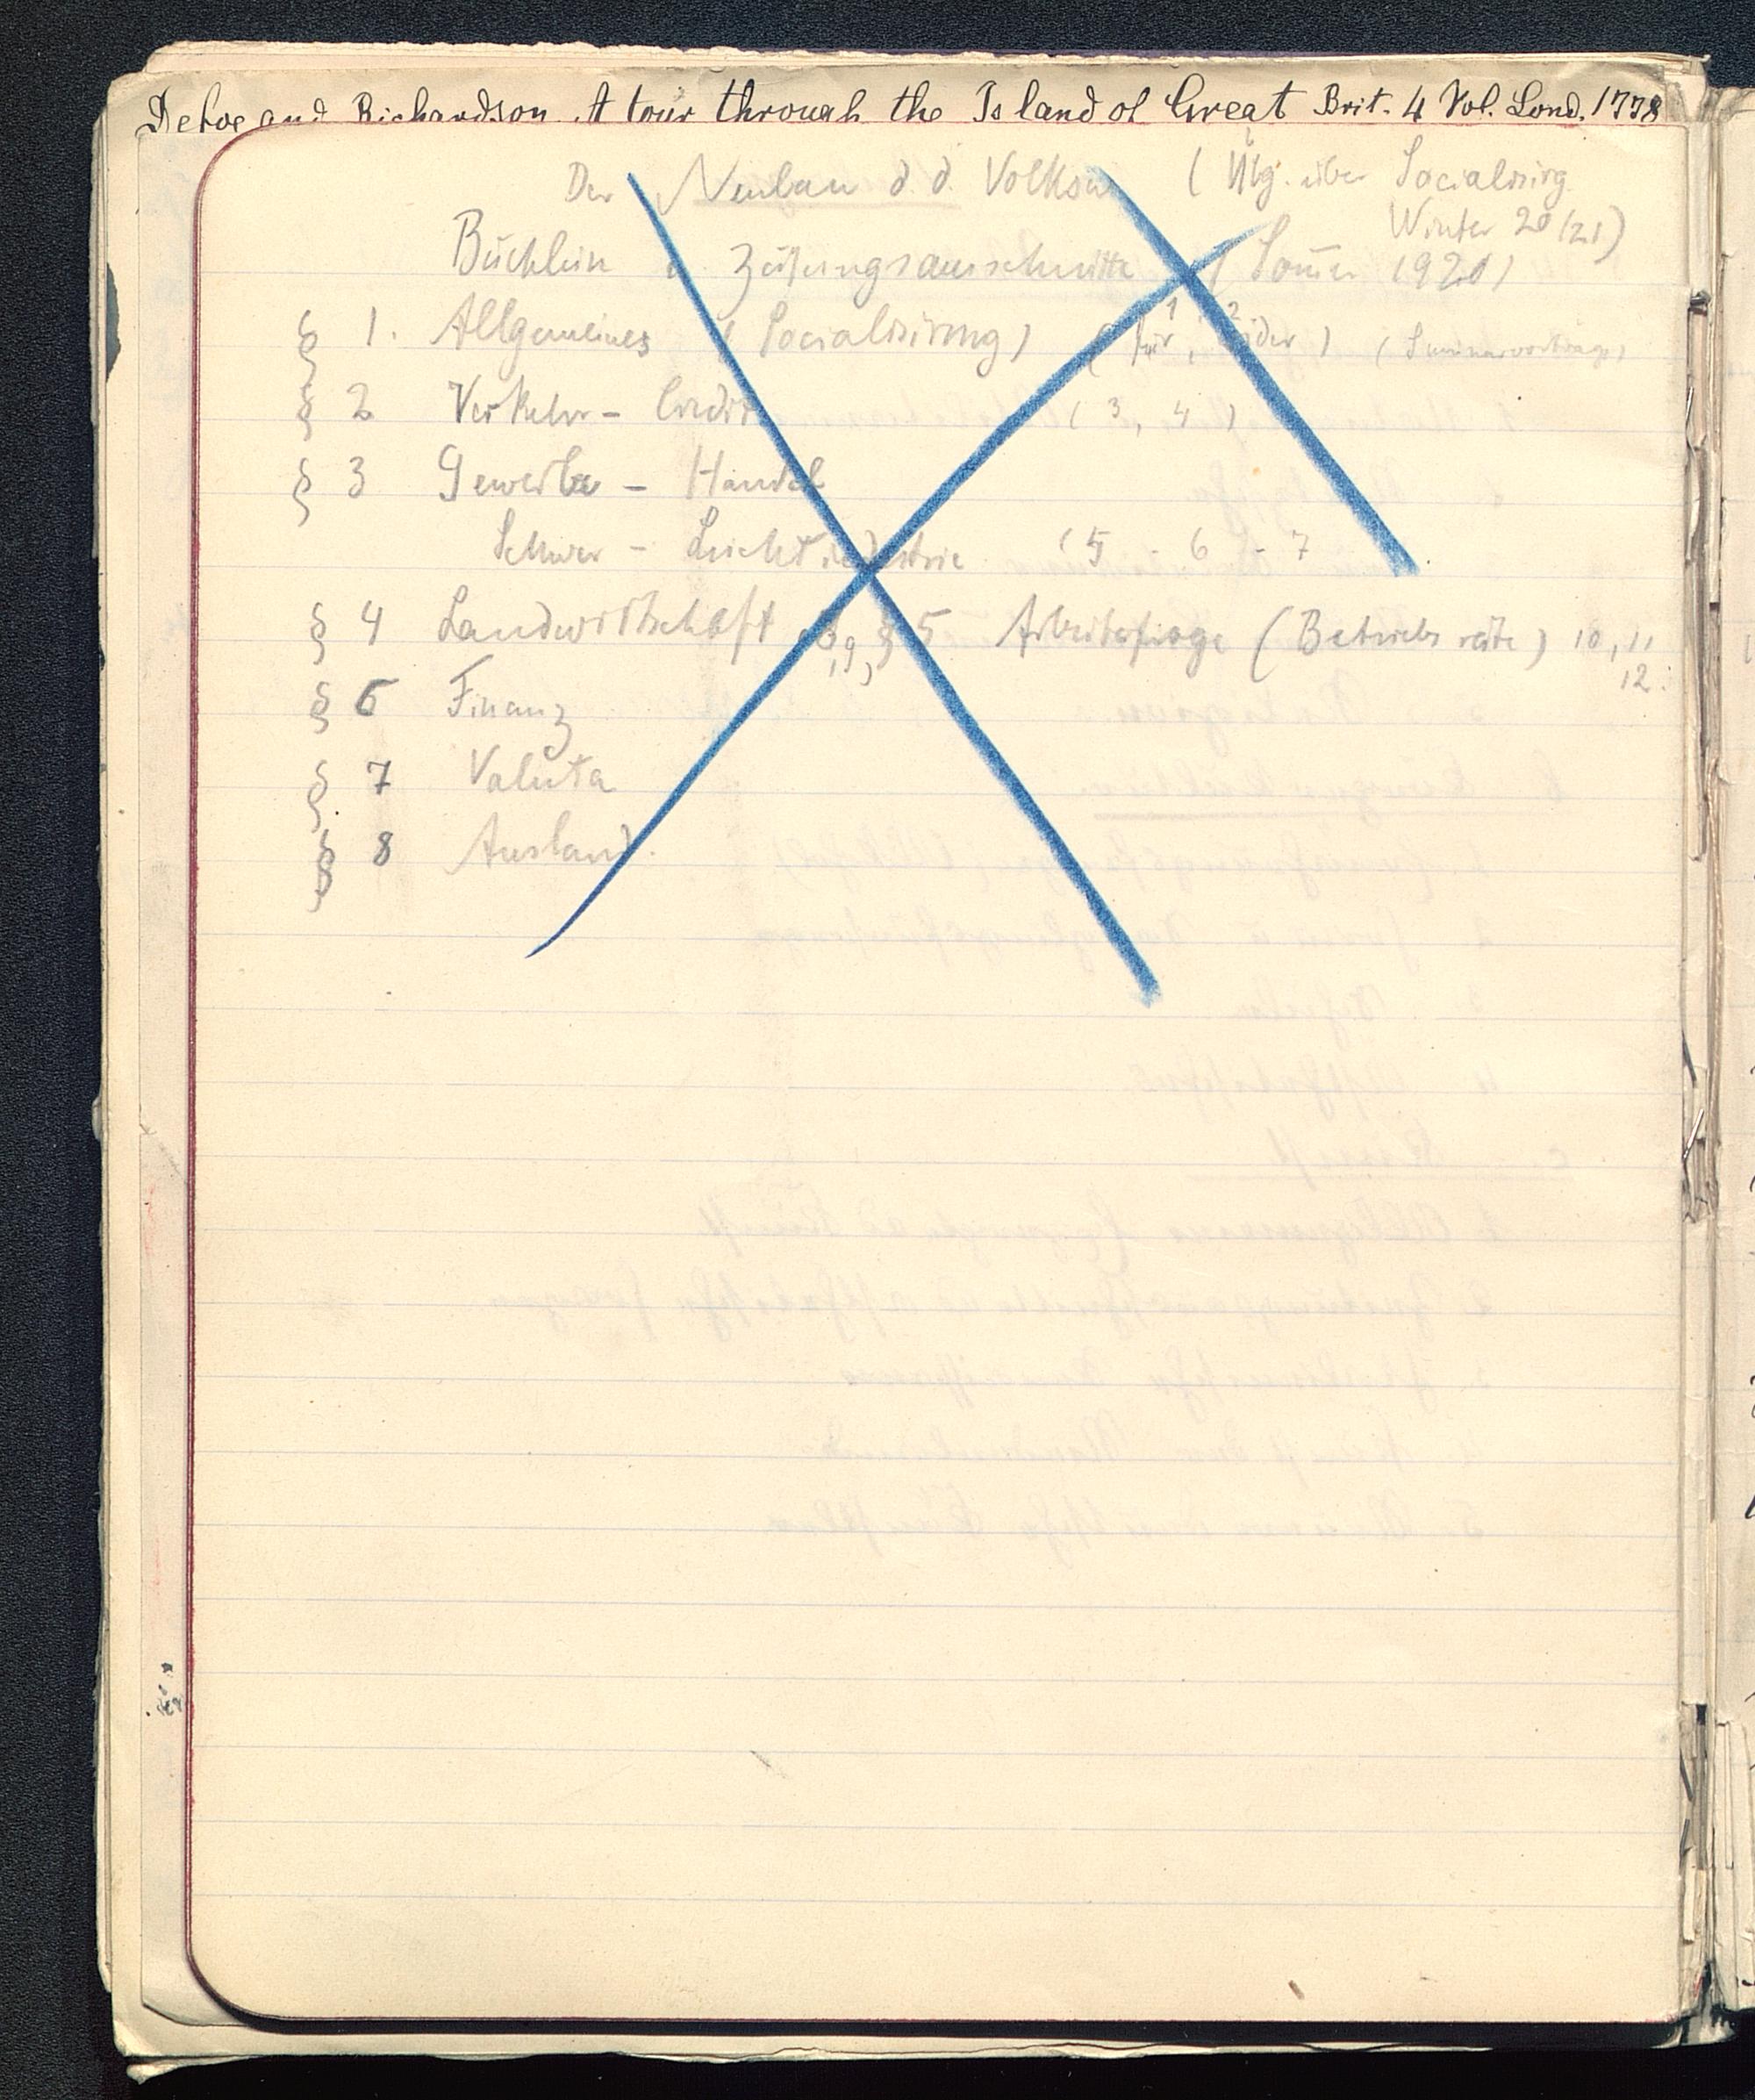 Defoe and Richardson. A tour through the Island of Great Brit. 4 Vol. Lond. 1778
Der Neubau d. d. Volksw (Übg. über Socialisirg
Winter 20/21)
Büchlein u. Zeitungsausschnitte (Som̅er 1920)
§ 1. Allgemeines (Socialisirung) (für 1, wider 2) (Seminarvorträge)
§ 2 Verkehr - Credit (3, 4)
§ 3 Gewerbe - Handel
Schwer - Leichtindustrie (5 - 6 - 7
§ 4 Landwirtschaft (8, 9,) § 5 Arbeiterfrage (Betriebsräte) 10, 11
12.
§ 6 Finanz
§ 7 Valuta
§ 8 Ausland.